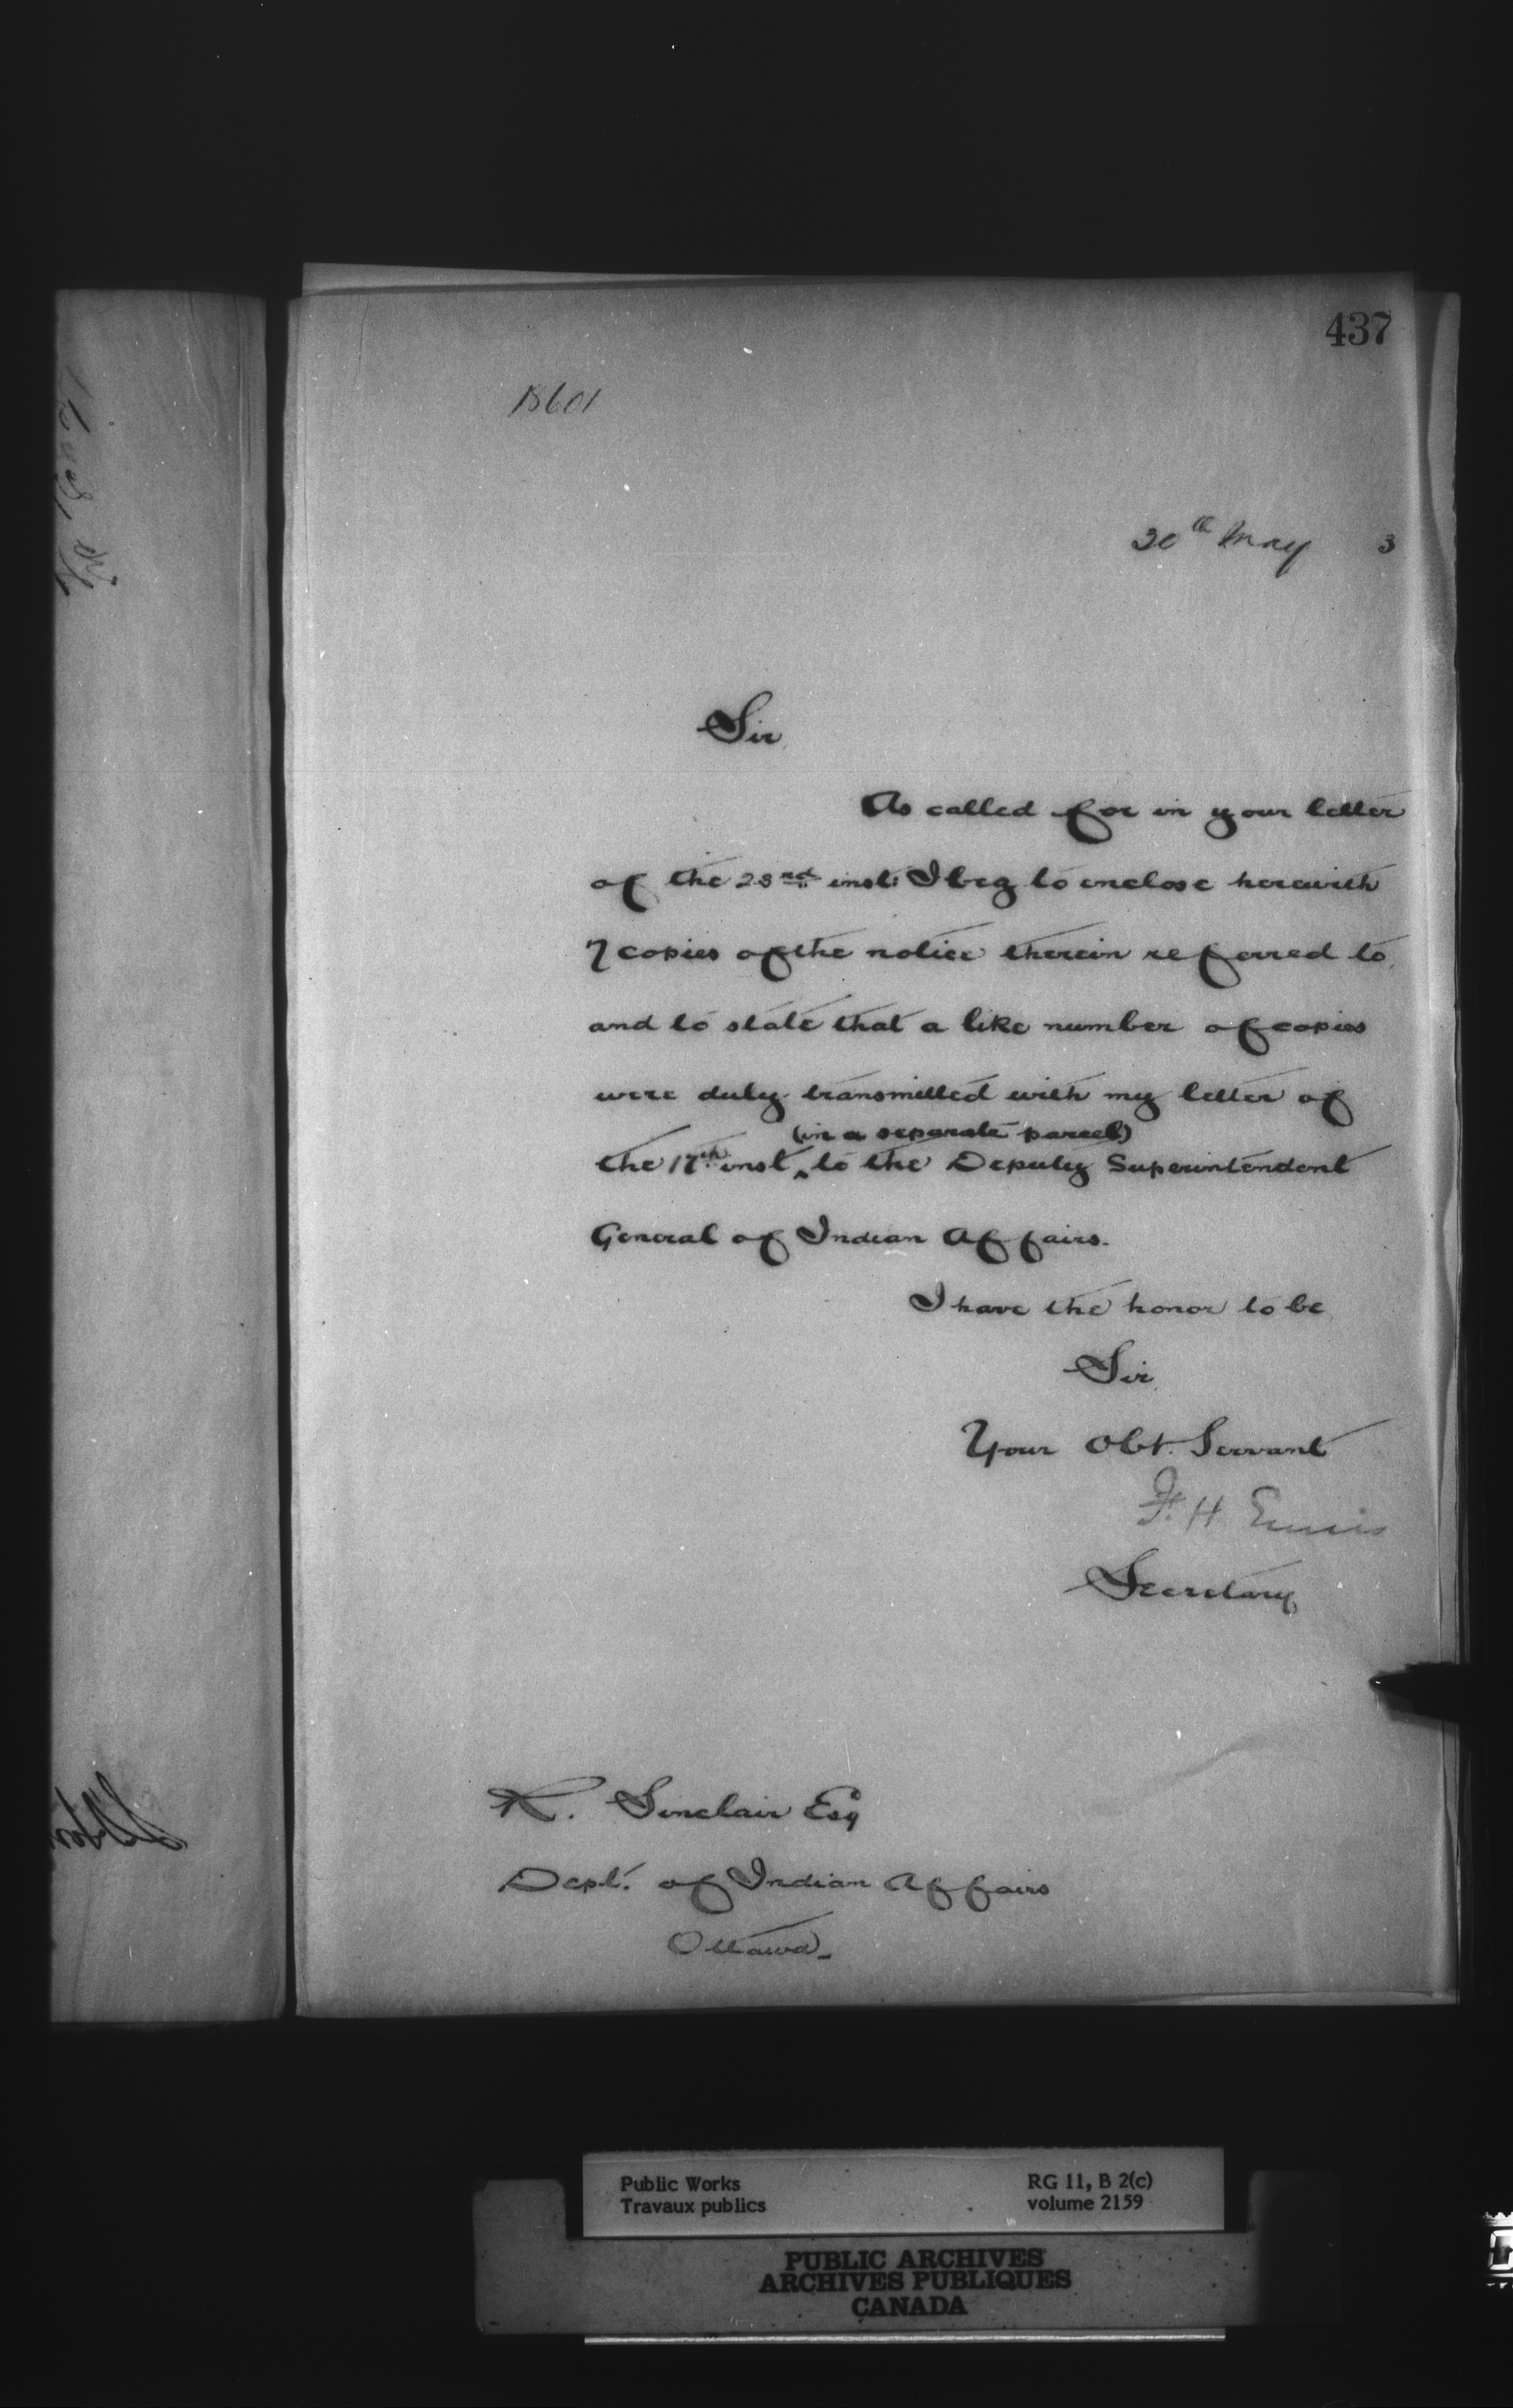 437
18601
30th May 3
Sir,
As called for in your letter
of the 23rd inst. I beg to enclose herewith
7 copies of the notice therein referred to,
and to state that a like number of copies
were duly transmitted with my letter of
(in a separate parcel)
the 17th inst ^ to the Deputy Superintendent
General of Indian Affairs.
I have the honor to be,
Sir,
Your Obt. Servant
F. H. Ennis
Secretary
R. Sinclair Esq
Dept. of Indian Affairs
Ottawa
Public Works
Travaux publics
RG 11, B 2(c)
volume 2159
PUBLIC ARCHIVES
ARCHIVES PUBLIQUES
CANADA